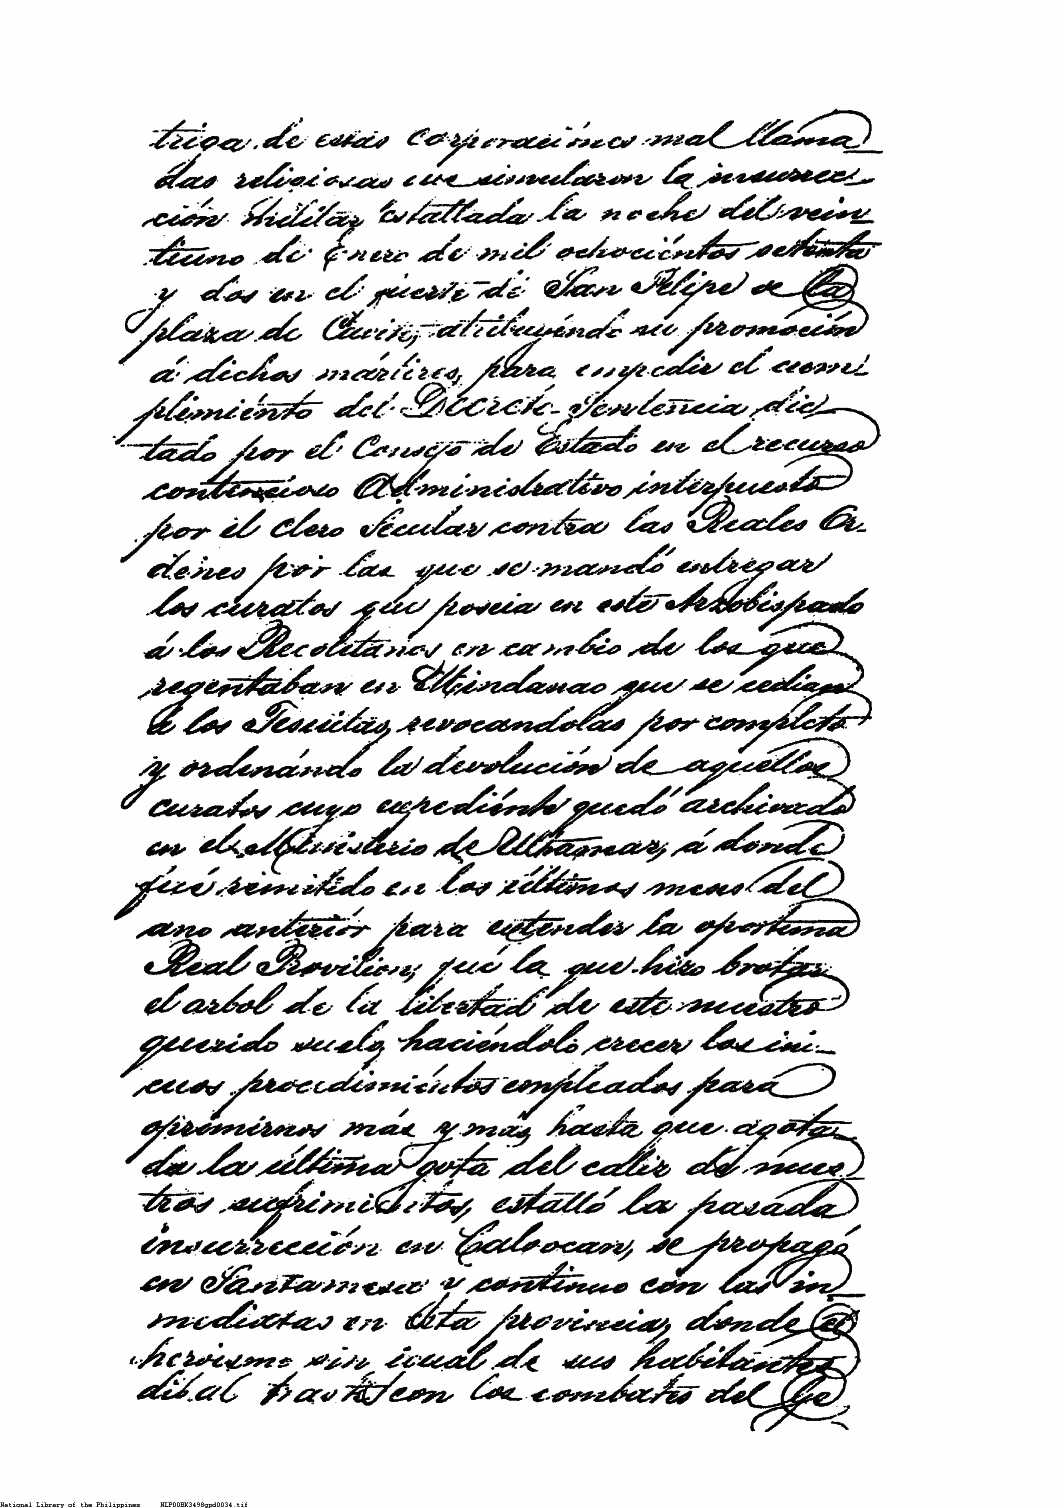 triga de esas corporaciónes mal llama_
das religiosas que simularon la insurrec_
ción Militar Estallada la noche del vein_
tiuno de Enero de mil ochociéntos setenta
y dos en el fuerte de San Felipe de la
plaza de Cavite, atribuyéndo su promoción
á dichos mártires, para empedir el cumi
plimiénto del Décreto-Sentencia dic_
tado por el Consejo de Estado en el recurso
contencioso Administrativo interpuesto
por el Clero Secular contra las Reales Or_
denes por las que se mandó entregar
los curatos que poseia en este Arzobispado
á los Recoletanos en cambio de los que
regentaban en Mindanao que se cedian
a los Jesuitas, revocandolas por completo
y ordenándo la devolución de aquéllos
curatos cuyo expediénte quedó archivado
en el Ministerio de Ultramar, á donde
fué remitido en los últimos meses del
ano anteriór para extender la oportuna
Real Provilion; fué la que hizo brotar
el arbol de la libertad de este nuestro
querido suelo, haciéndolo crecer los ini_
cuos procedimiéntos empleados para
oprimirnos más y más, hasta que agota_
da la última gota del caliz de nues_
tros sufrimientos, estalló la pasada
insurrección en Caloocan, se propagó
en Santamesa y continuo con las in_
mediatas en esta provincia, donde el
heroismo sin igual de sus habitantes
con los combates del Ge